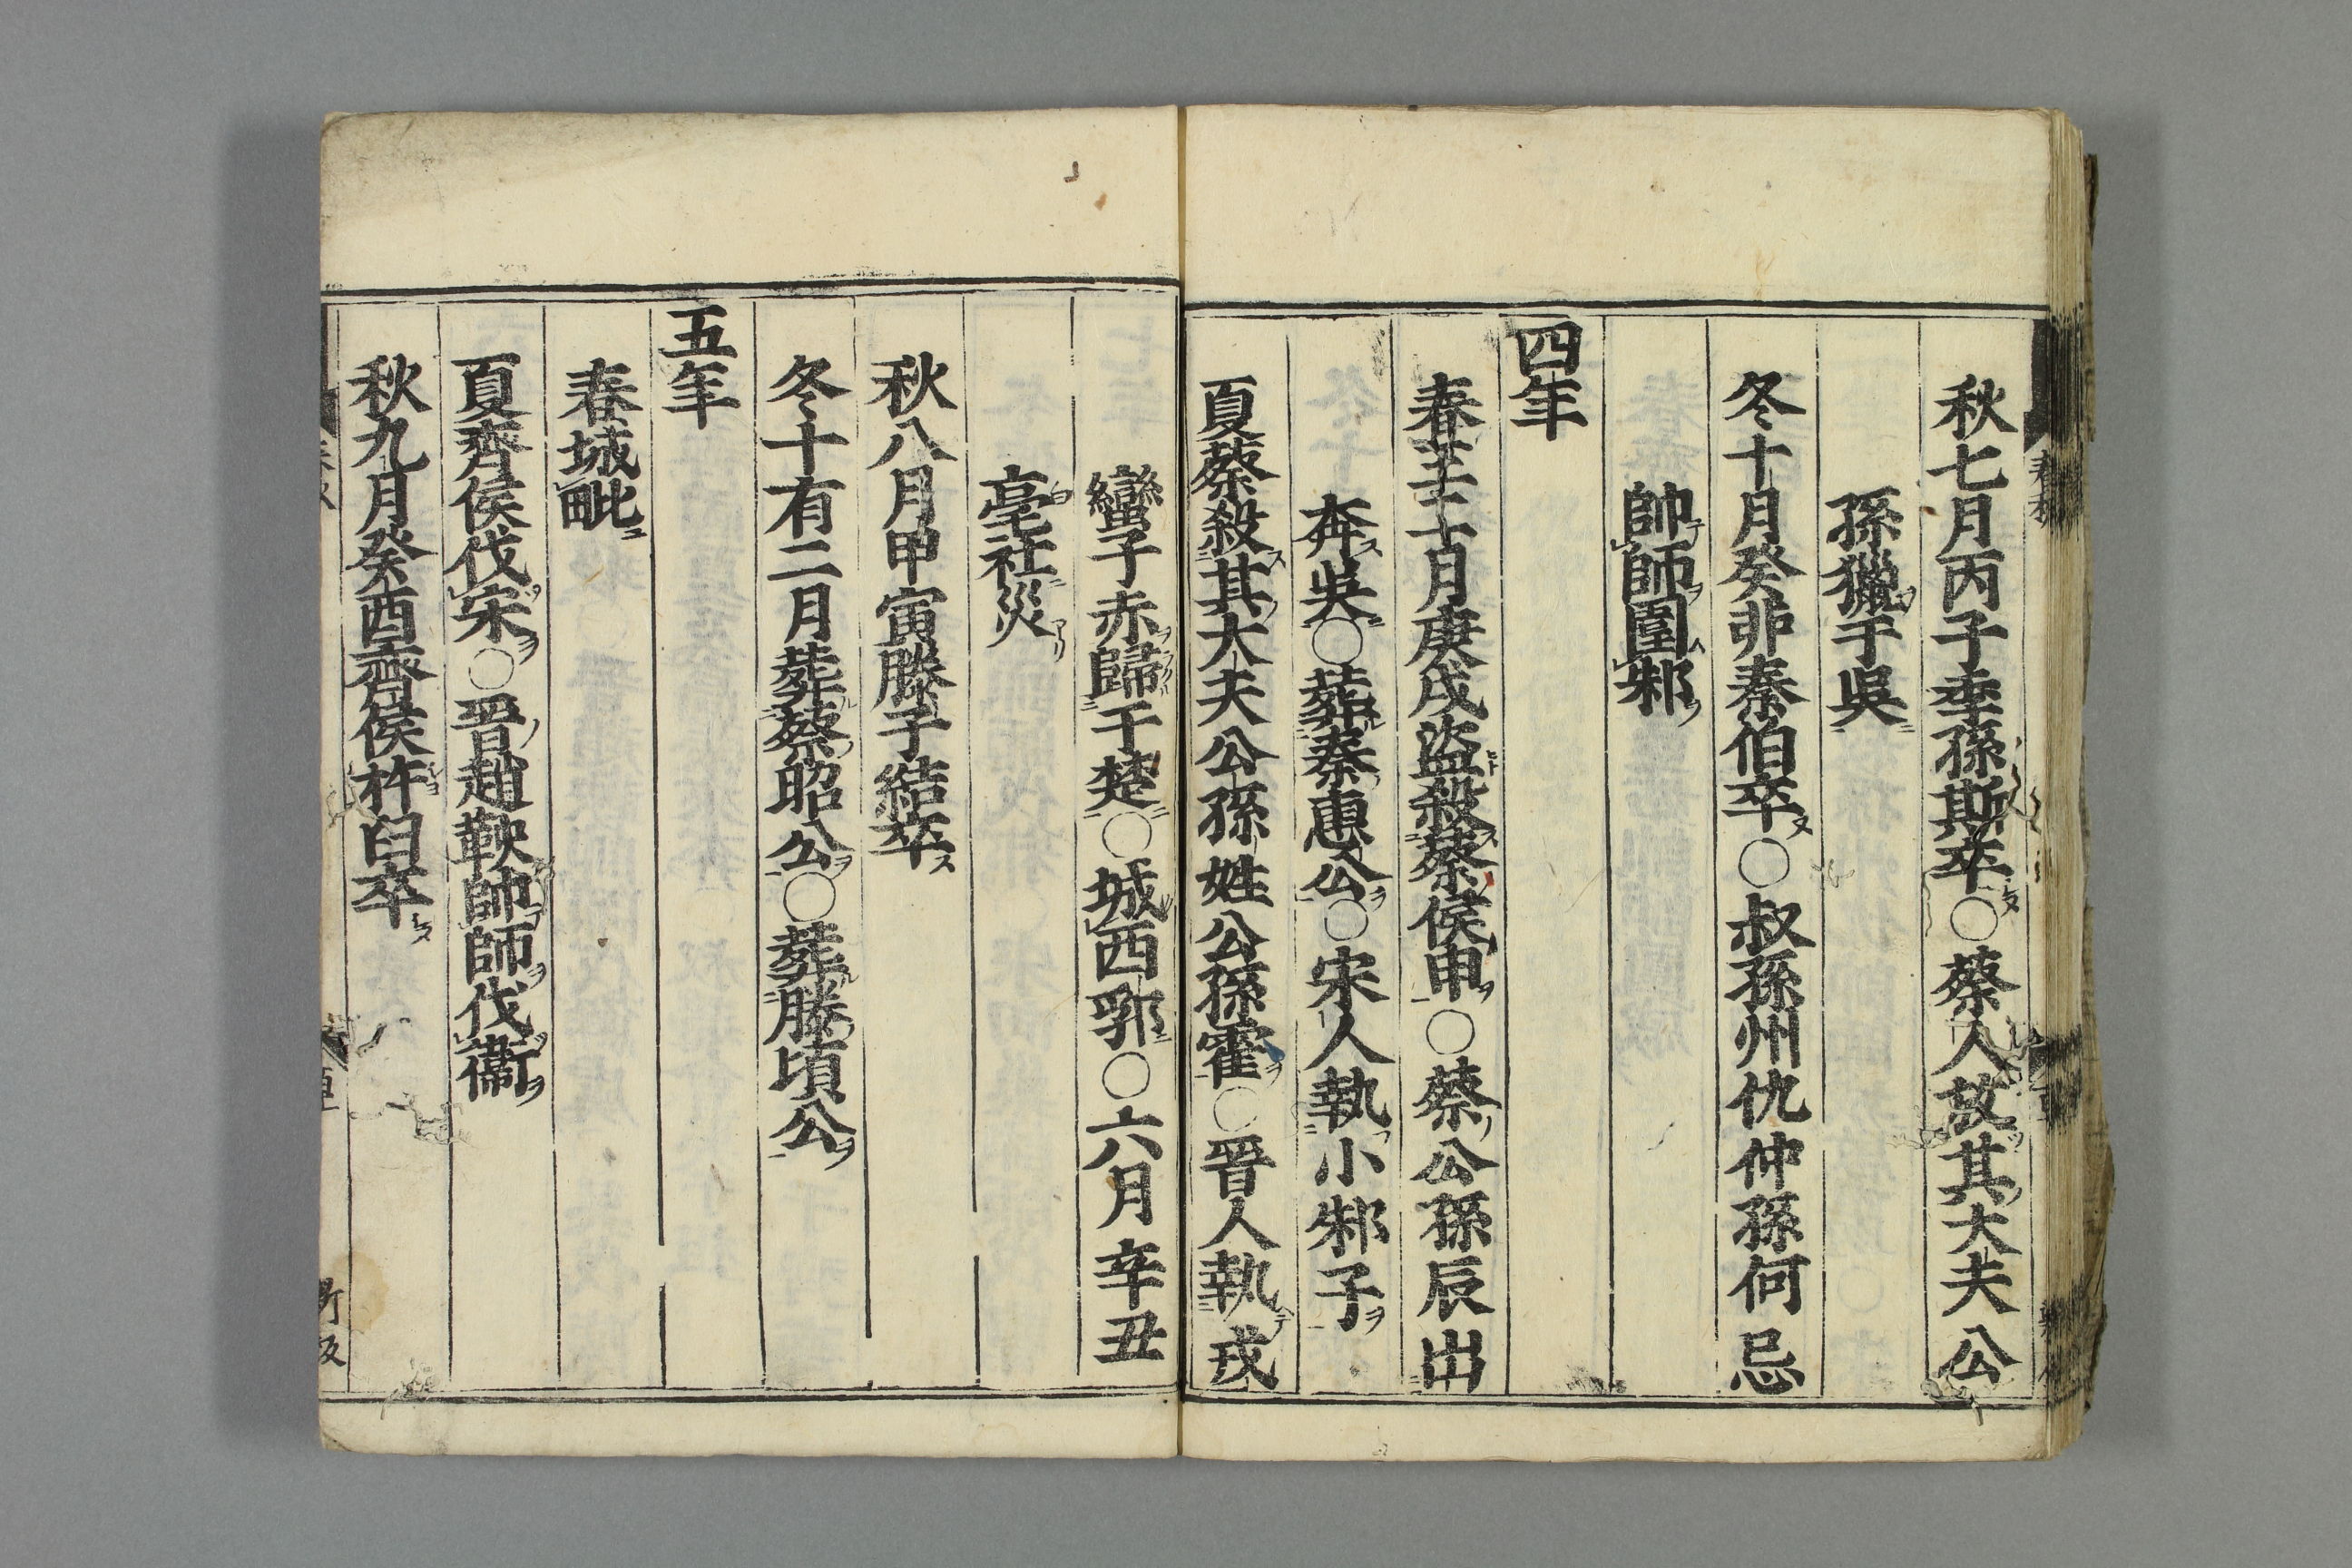 秋七月丙子季孫斯卒〇蔡人放其大夫公
孫獵于吳
冬十月癸非秦伯卒〇叔孫州仇仲孫何忌
帥師圍邾
四年
春王二月庚戌盜殺蔡侯申〇蔡公孫辰出
奔吳〇葬秦惠公〇宋人執小邾子
夏蔡殺其大夫公孫姓公孫霍〇晉人執戎
蠻子赤歸于楚〇城西郛〇六月辛丑
亳社災
秋八月甲寅滕子結卒
冬十有二月葬蔡昭公〇葬滕頃公
五年
春城毗
夏齊侯伐宋〇晉趙鞅帥師伐衞
秋九月癸酉齊侯杵臼卒